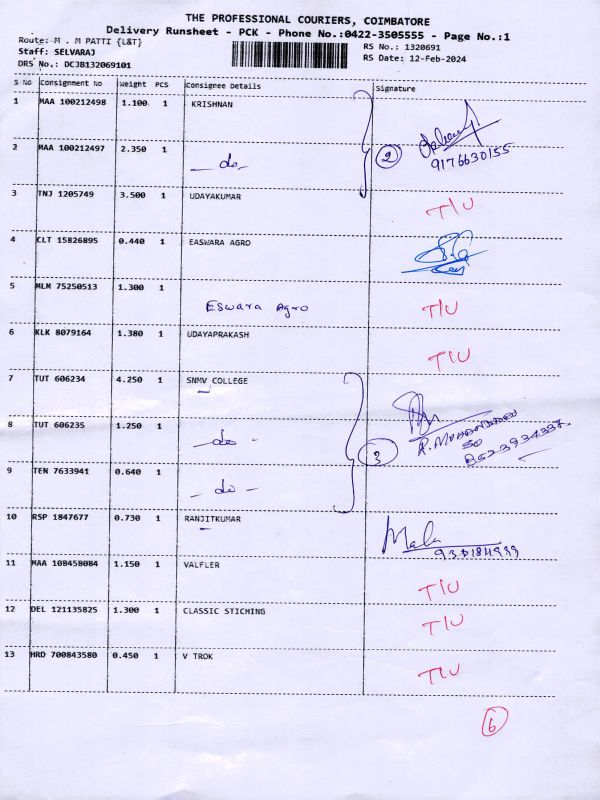 THE PROFESSIONAL COURIERS, COIMBATORE
Delivery Runsheet - PCK - Phone No.:0422-3505555 - Page No.:1
Route:-M . M PATTI {L&T}
Staff: SELVARAJ
DRS No.: DCJB132069101
RS No.: 1320691
RS Date: 12-Feb-2024
S No Consignment No Weight PCS Consignee Details Signature
1 MAA 100212498 1.100 1 KRISHNAN
2 MAA 100212497 2.350 1 — do — 2 9176630155
3 TNJ 1205749 3.500 1 UDAYAKUMAR T/U
4 CLT 15826895 0.440 1 EASWARA AGRO
5 MLM 75250513 1.300 1 Eswara Agro T/U
6 KLK 8079164 1.380 1 UDAYAPRAKASH T/U
7 TUT 606234 4.250 1 SNMV COLLEGE
8 TUT 606235 1.250 1 — do - 3
9 TEN 7633941 0.640 1 — do -
10 RSP 1847677 0.730 1 RANJITKUMAR Mala
11 MAA 108458084 1.150 1 VALFLER T/U
12 DEL 121135825 1.300 1 CLASSIC STICHING T/U
13 HRD 700843580 0.450 1 V TROK T/U
6